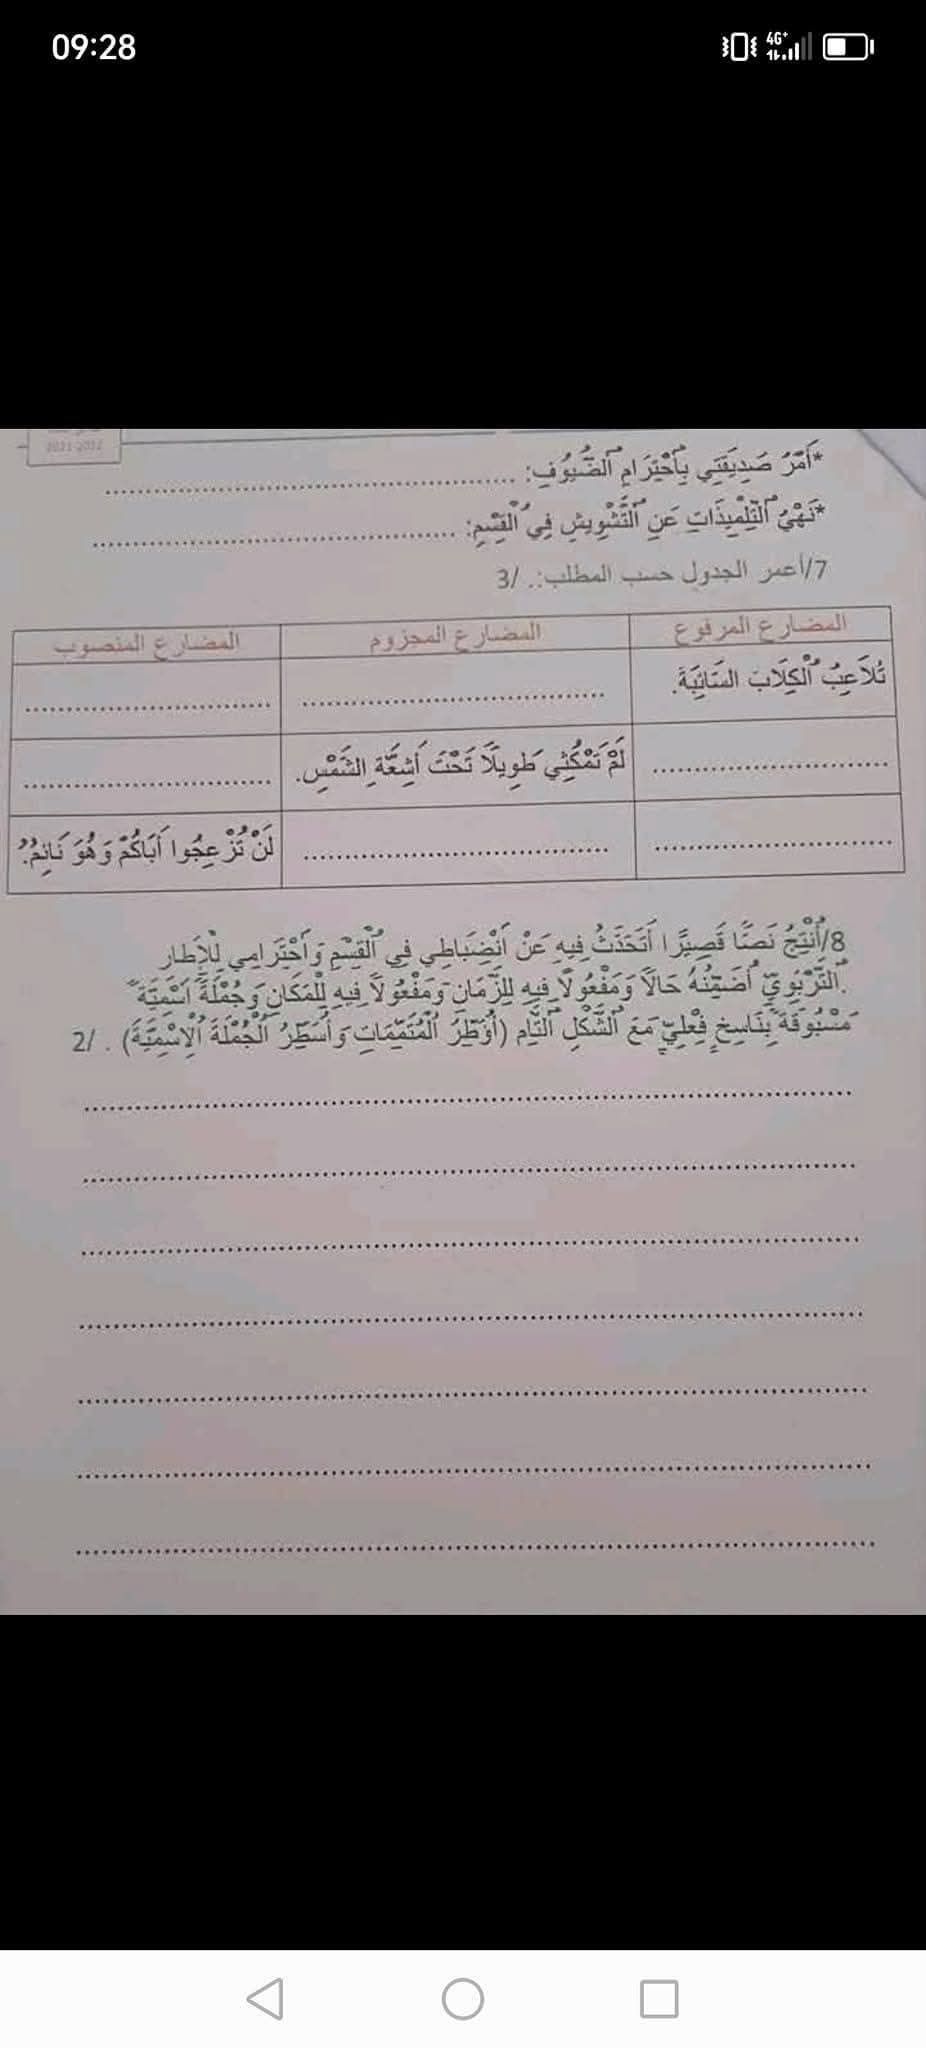 09:28
4G+
2021-2022
*أَمْرُ صَدِيقَتِي بِٱحْتِرَامِ ٱلضُّيُوفِ: ..............................
*نَهْيُ ٱلتِّلْمِيذَاتِ عَنِ ٱلتَّشْوِيشِ فِي ٱلْقِسْمِ: ..............................
7/أعمر الجدول حسب المطلب:. /3
المضارع المرفوع المضارع المجزوم المضارع المنصوب
تُلَاعِبُ ٱلْكِلَابَ السَّائِبَةَ. .............................. ..............................
.............................. لَمْ تَمْكُثِي طَوِيلًا تَحْتَ أَشِعَّةِ الشَّمْسِ. ..............................
.............................. .............................. لَنْ تُزْعِجُوا أَبَاكُمْ وَهُوَ نَائِمٌ.
8/أُنْتِجُ نَصًّا قَصِيرًا أَتَحَدَّثُ فِيهِ عَنْ ٱنْضِبَاطِي فِي ٱلْقِسْمِ وَٱحْتِرَامِي لِلْإِطَارِ
ٱلتَّرْبَوِيِّ أُضَمِّنُهُ حَالًا وَمَفْعُولًا فِيهِ لِلزَّمَانِ وَمَفْعُولًا فِيهِ لِلْمَكَانِ وَجُمْلَةً ٱسْمِيَّةً
مَسْبُوقَةً بِنَاسِخٍ فِعْلِيٍّ مَعَ ٱلشَّكْلِ ٱلتَّامِ (أُؤَطِّرُ ٱلْمُتَمِّمَاتِ وَأُسَطِّرُ ٱلْجُمْلَةَ ٱلْإِسْمِيَّةَ) . /2